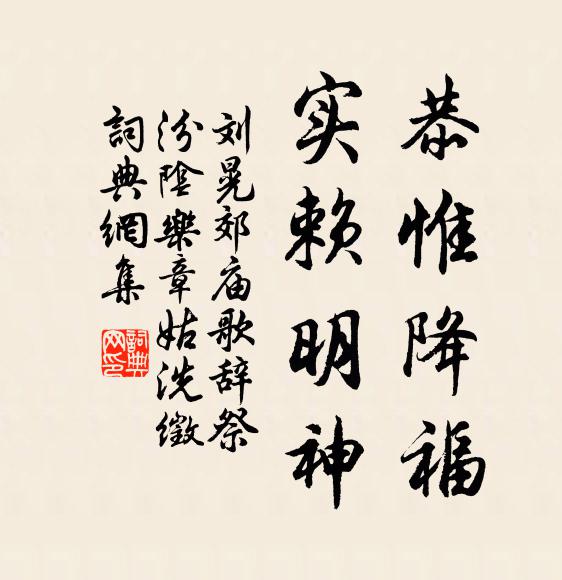 恭惟降福
实赖明神
刘晃郊庙歌辞祭
汾陰樂章姑洗徵
詞典網集
詞典网印